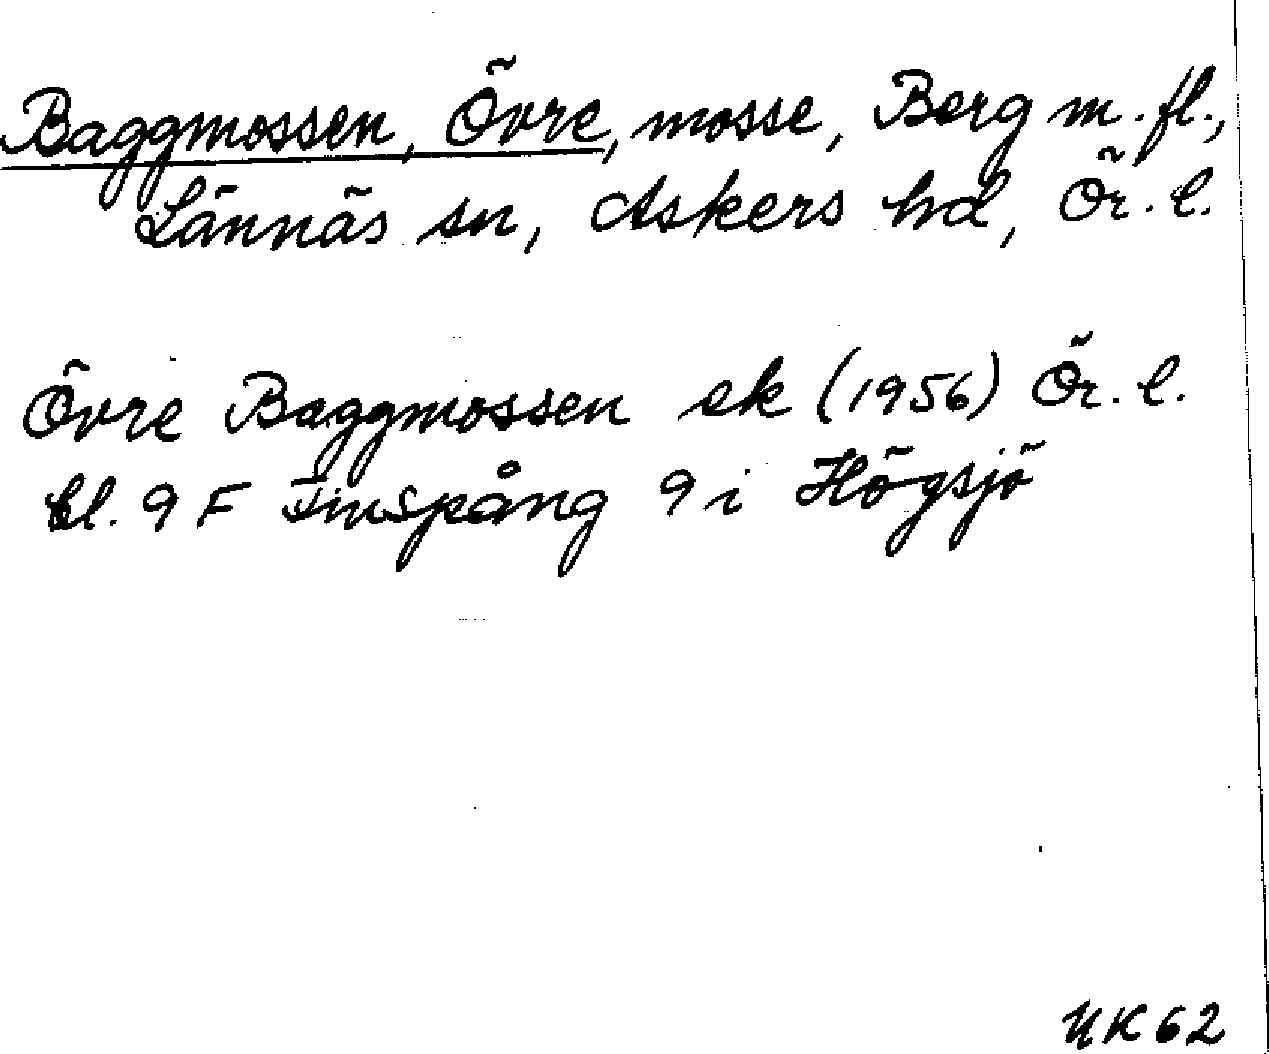 Baggmossen, Övre, mosse, Berg m.fl.,
Lännäs sn, Askers hd, Ör. l.
Övre Baggmossen ek (1956) Ör. l.
bl. 9 F Finspång 9 i Högsjö
UK 62